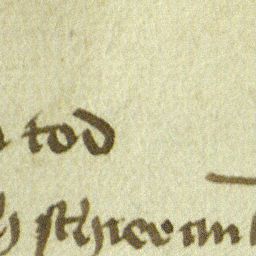 tod
schier an